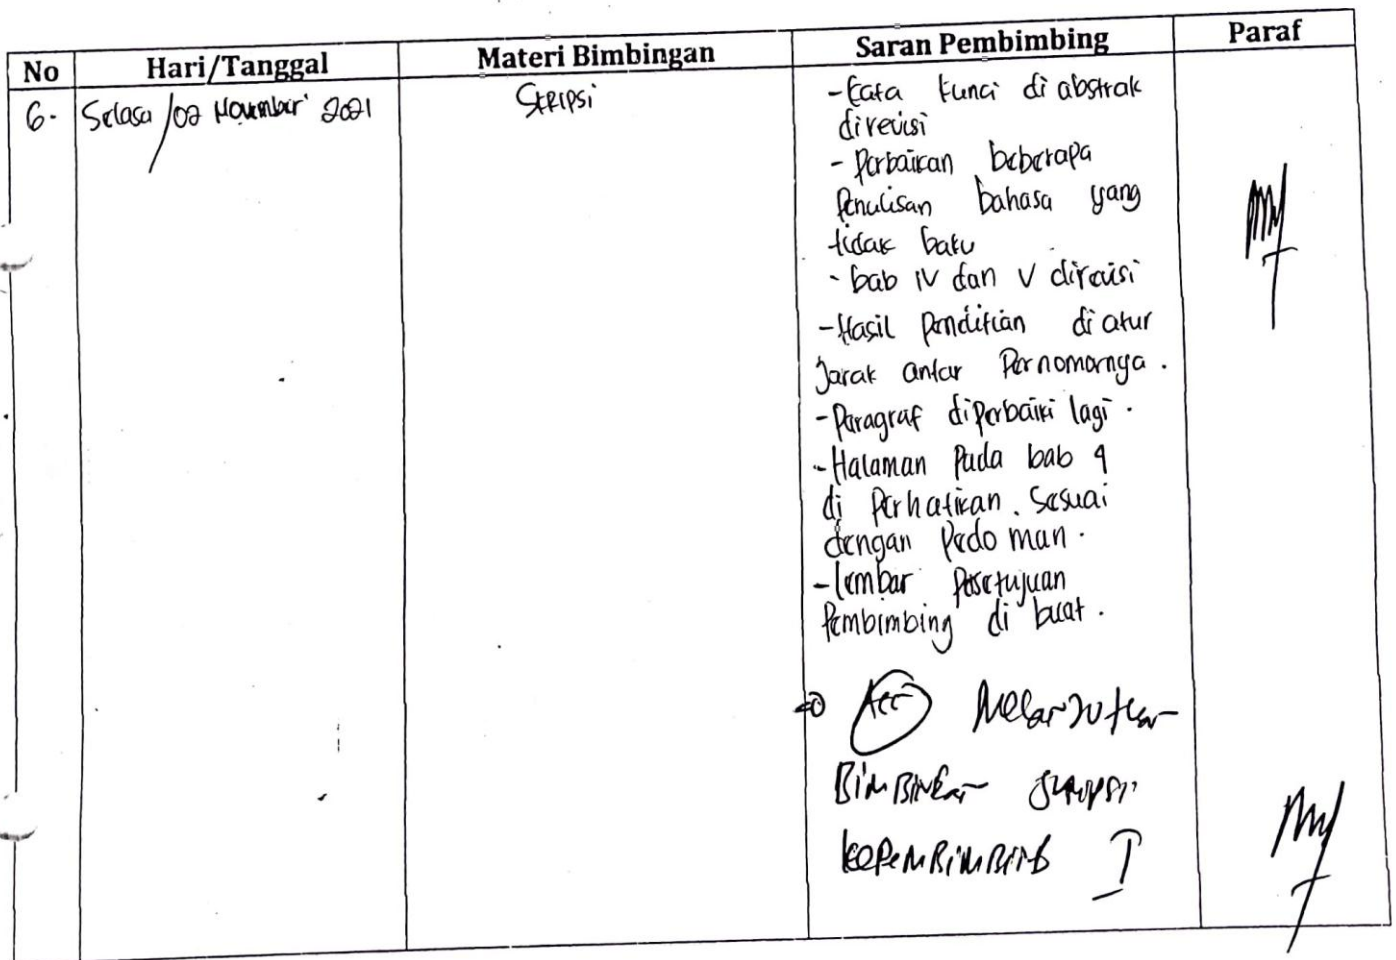 No Hari/Tanggal Materi Bimbingan Saran Pembimbing Paraf
6. Selasa/02 November 2021 Skripsi -Kata kunci di abstrak
direvisi
- Perbaikan beberapa
Penulisan bahasa yang
tidak baku
- bab IV dan V direvisi
-Hasil penelitian di atur
Jarak antar Pernomornya.
-Paragraf diperbaiki lagi.
-Halaman Pada bab 4
di Perhatikan. Sesuai
dengan Pedoman.
-lembar Pesetujuan
Pembimbing di buat.
Acc Melanjutkan
Bimbingan skripsi
kePembimbing I